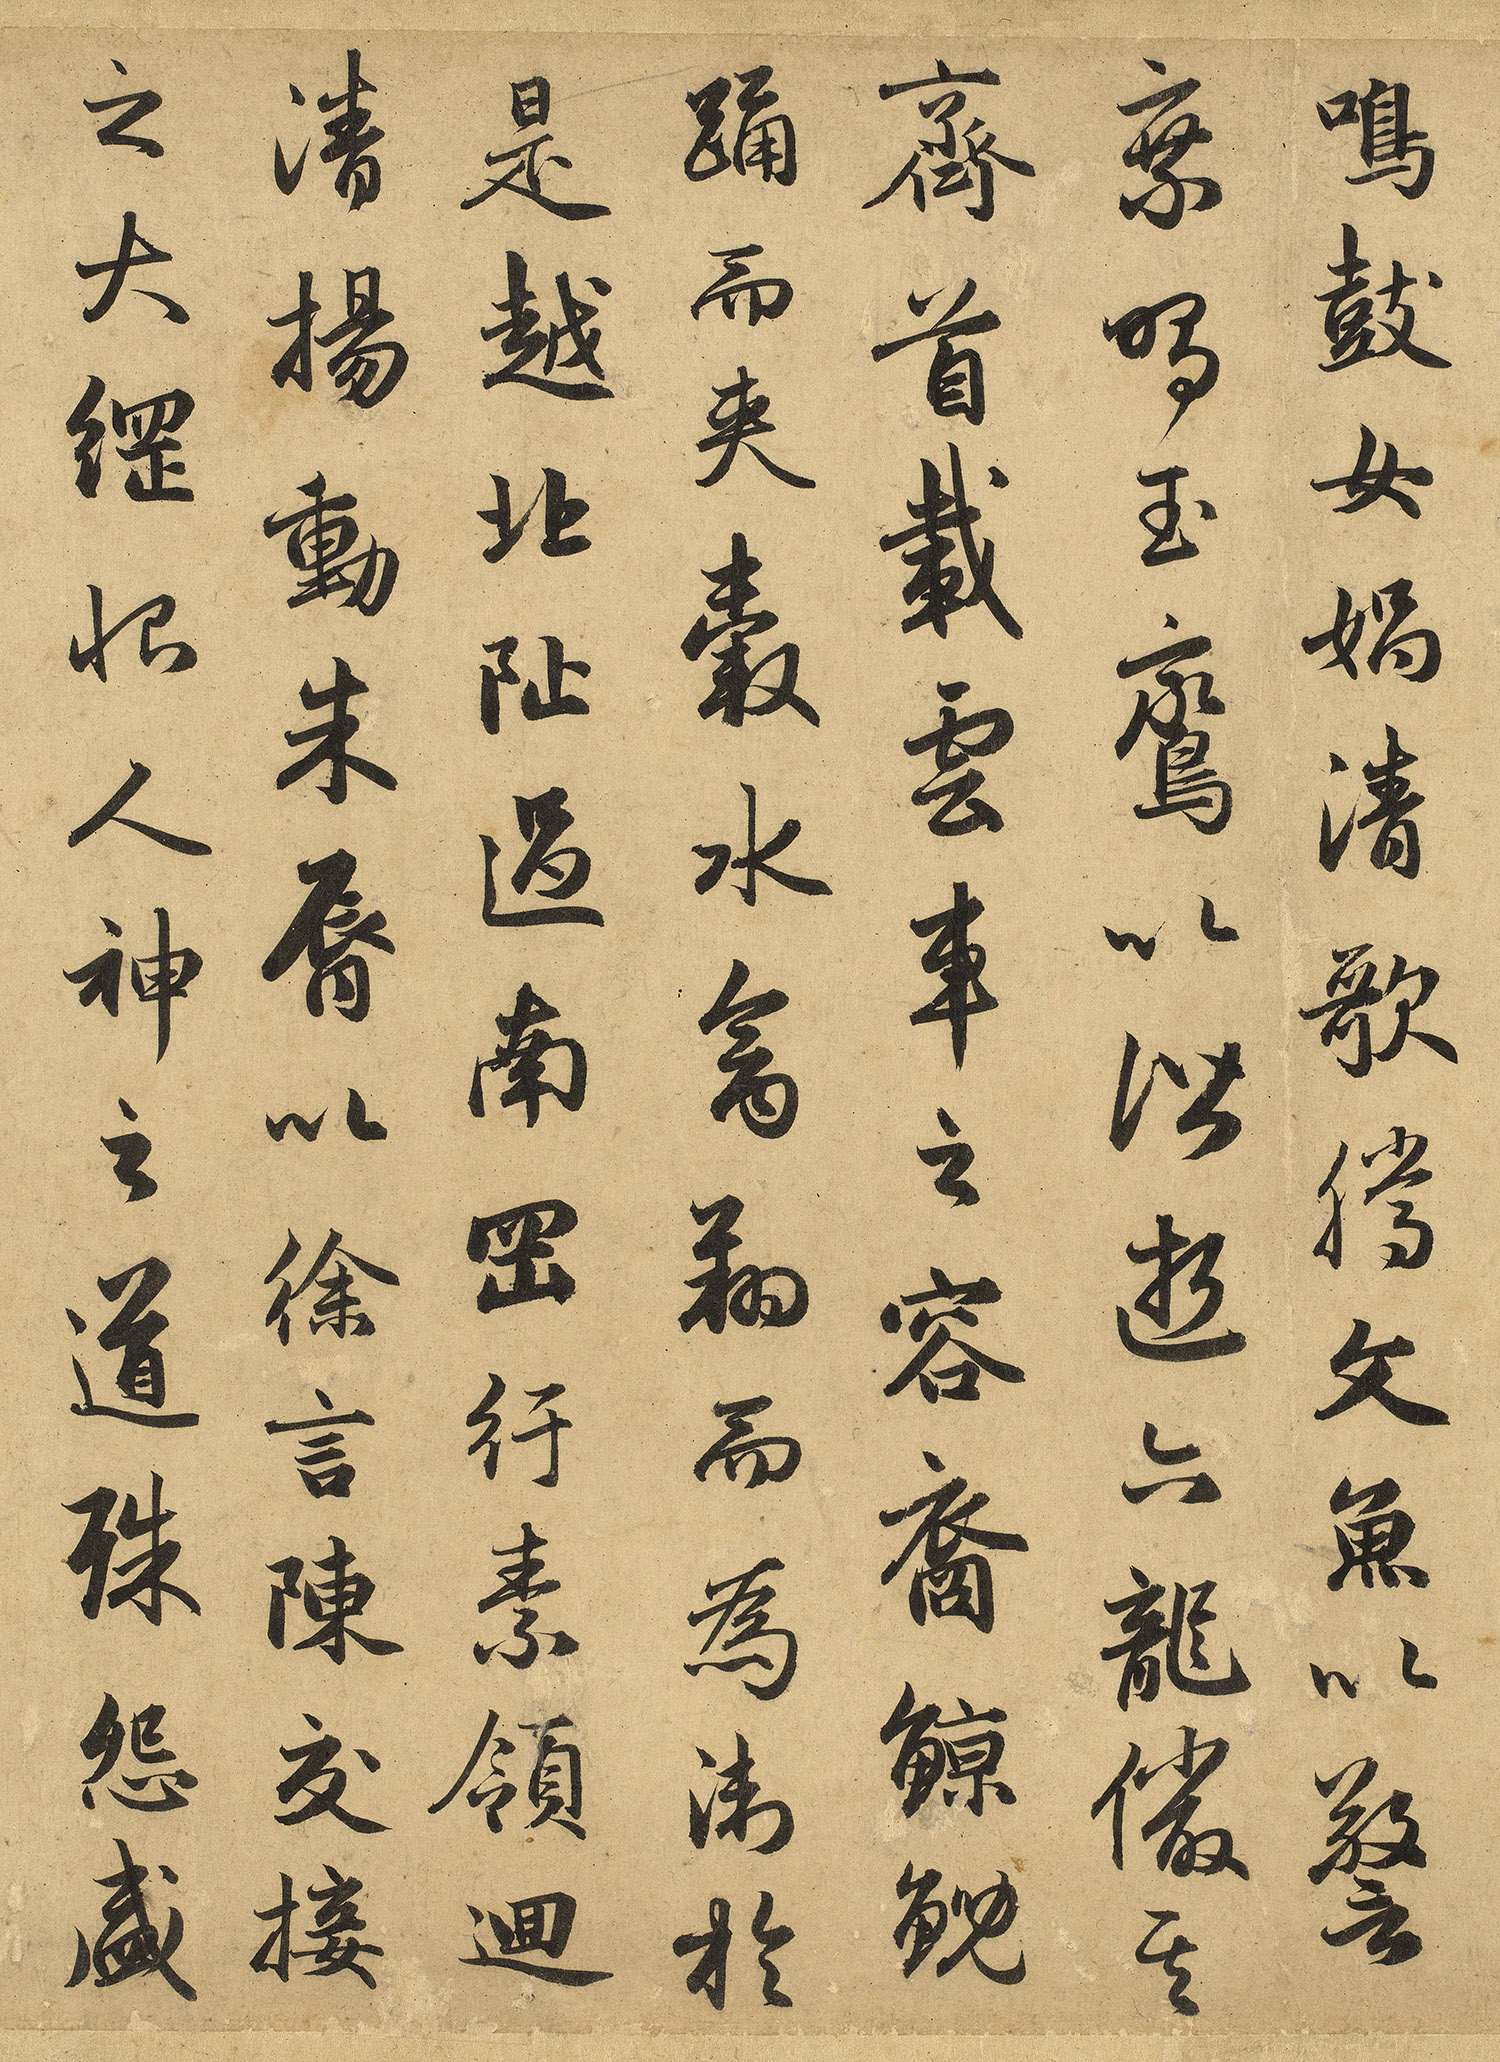 鳴鼓女媧清歌騰文魚以警
乗鳴玉鸞以偕逝六龍儼其
齊首載雲車之容裔鯨鯢
踊而夾轂水禽翔而為衛於
是越北阯過南岡行素領迴
清揚動朱脣以徐言陳交接
之大綱恨人神之道殊怨盛